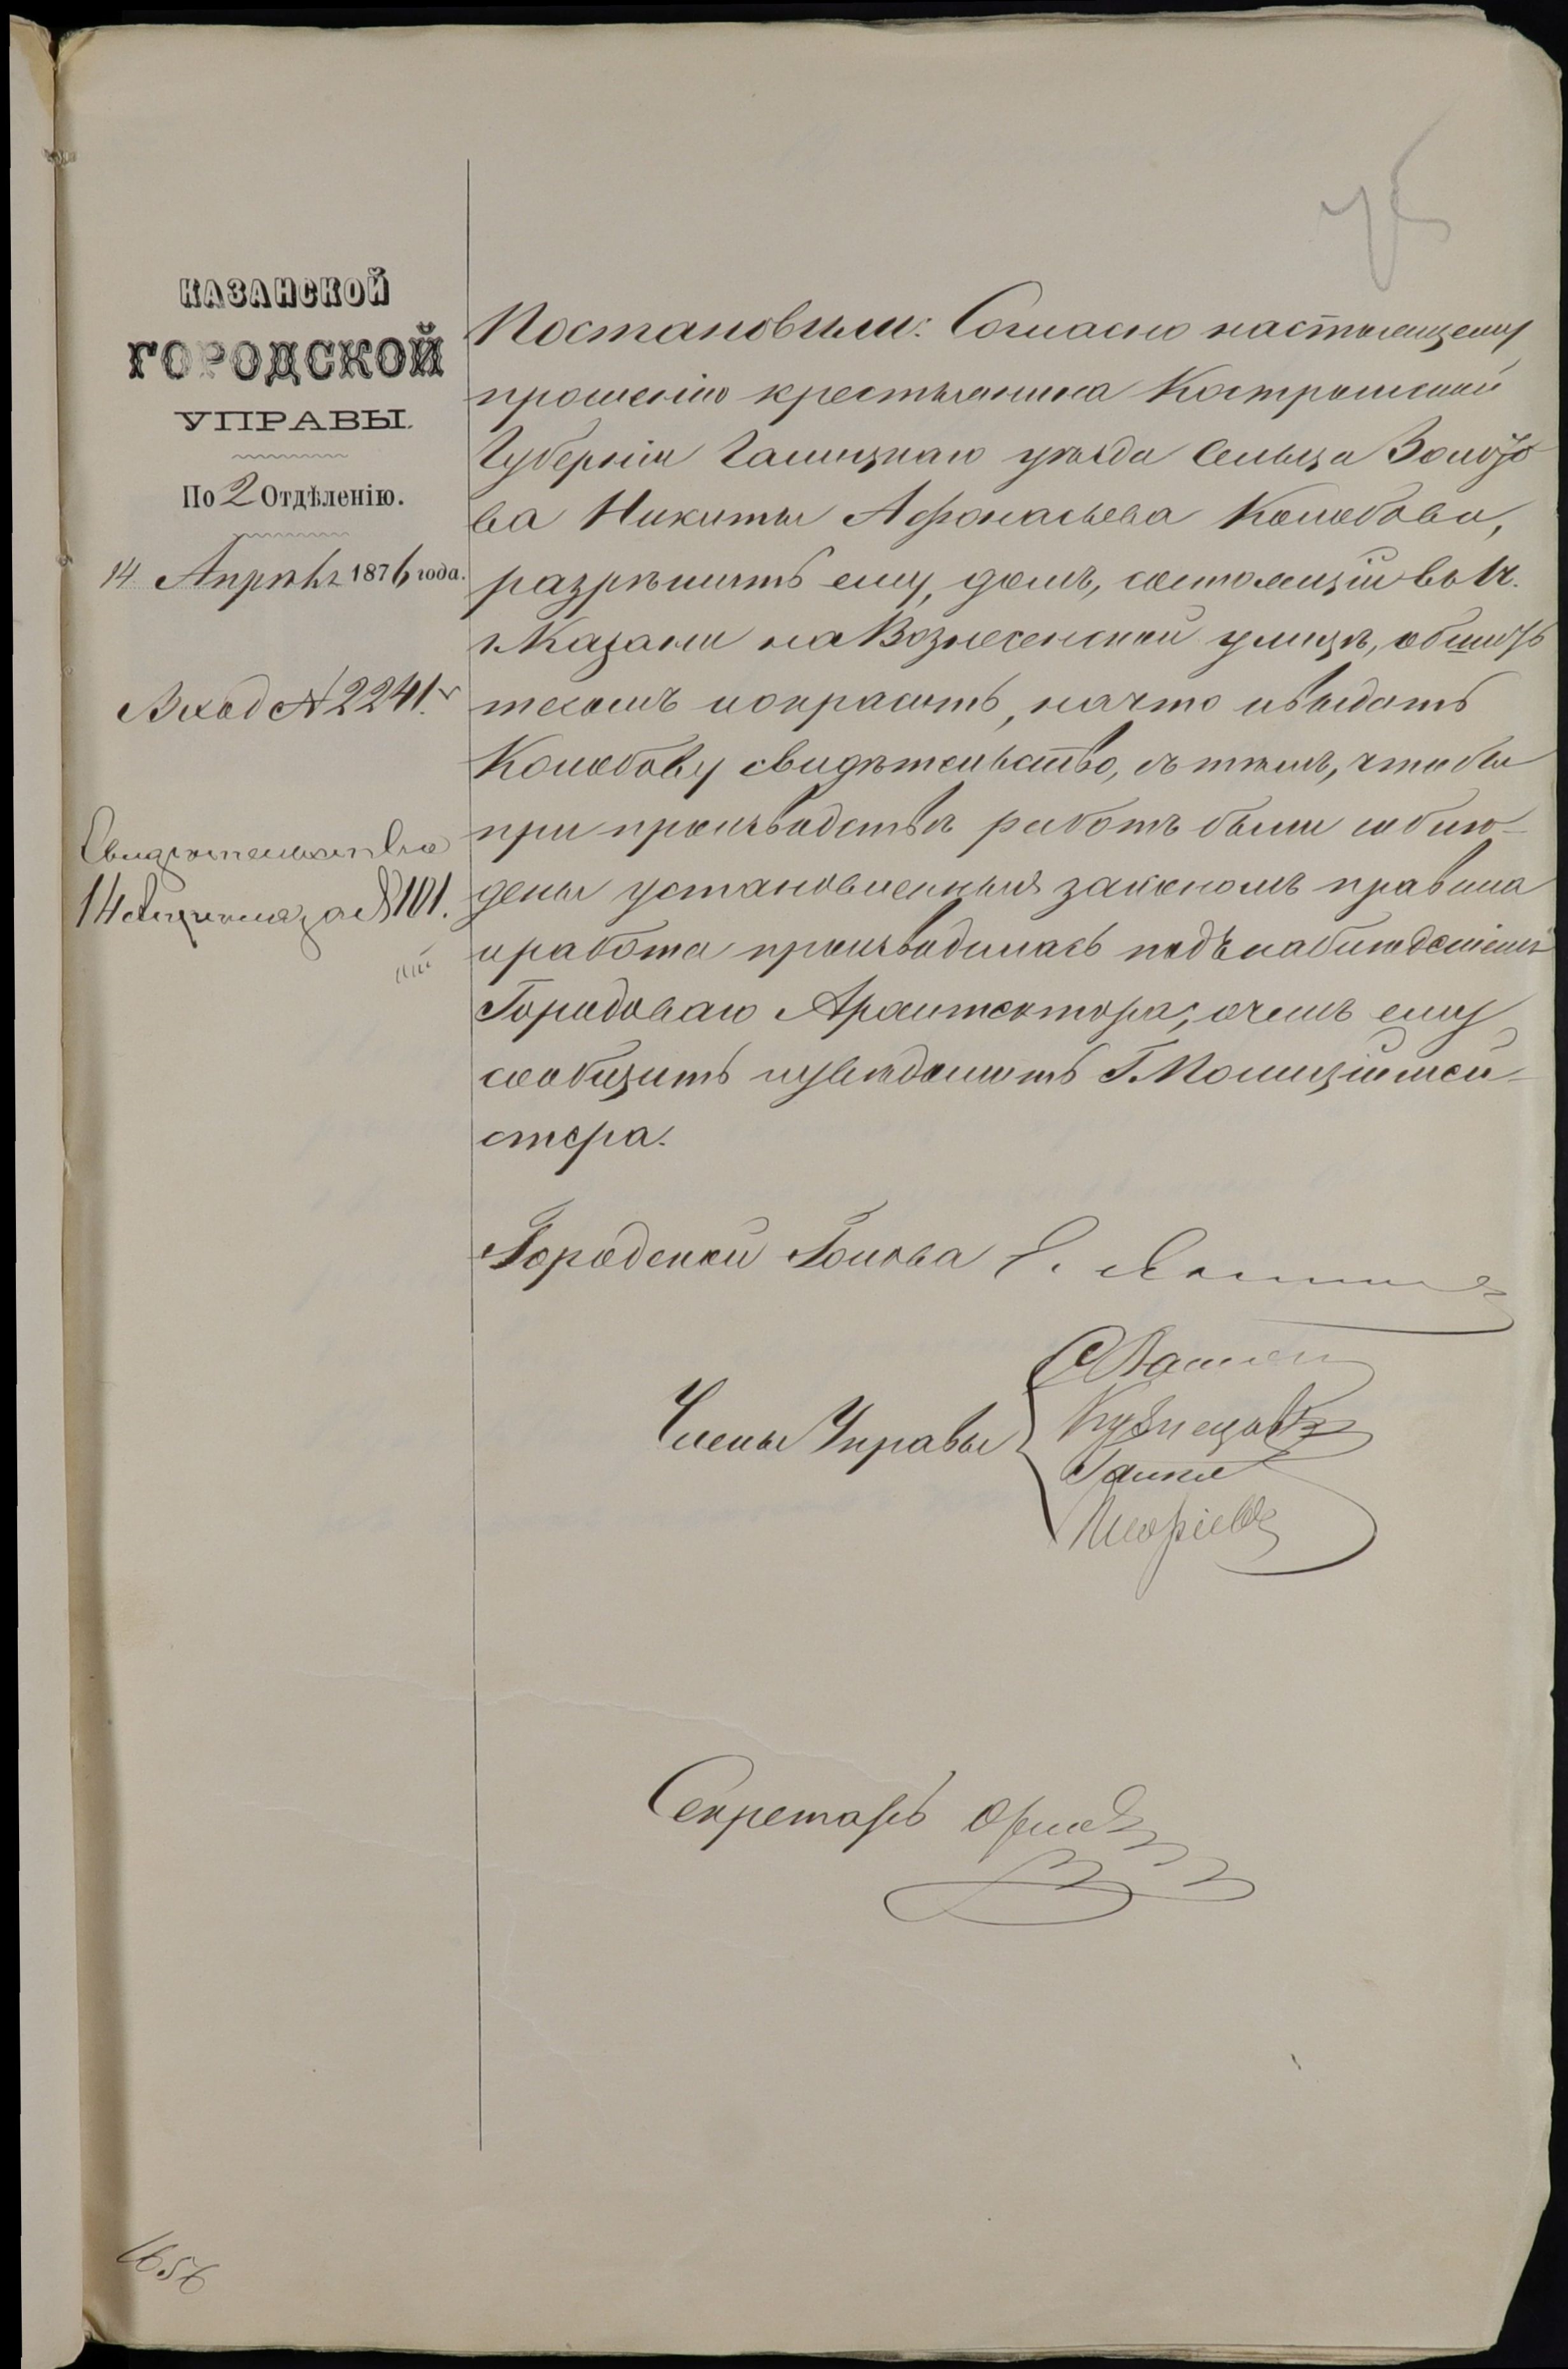 КАЗАНСКОЙ
ГОРОДСКОЙ
УПРАВЫ.
По 2 Отдѣленію.
14 Апрѣля 1876 года.
Вход № 2241.
Свидѣтельство
14 Апрѣля за № 101.
Постановили: Согласно настоящему
прошенію крестьянина Костромской
Губерніи Галицкаго уѣзда Сельца
ва Никиты Афонасьева Колобова,
разрѣшить ему, домъ, состоящій во 1 ч.
г. Казани на Вознесенской улицѣ, обшить
тесомъ и окрасить, на что и выдать
Колобову свидѣтельство, съ тѣмъ, чтобы
при производствѣ работъ были соблю-
дены установленныя закономъ правила
и работа производилась подъ наблюденіемъ
Городоваго Архитектора, о чемъ ему
сообщить и увѣдомить Г. Полиціймей-
стера.
Городской Голова
Члены Управы
Кузнецовъ
Секретарь
1656